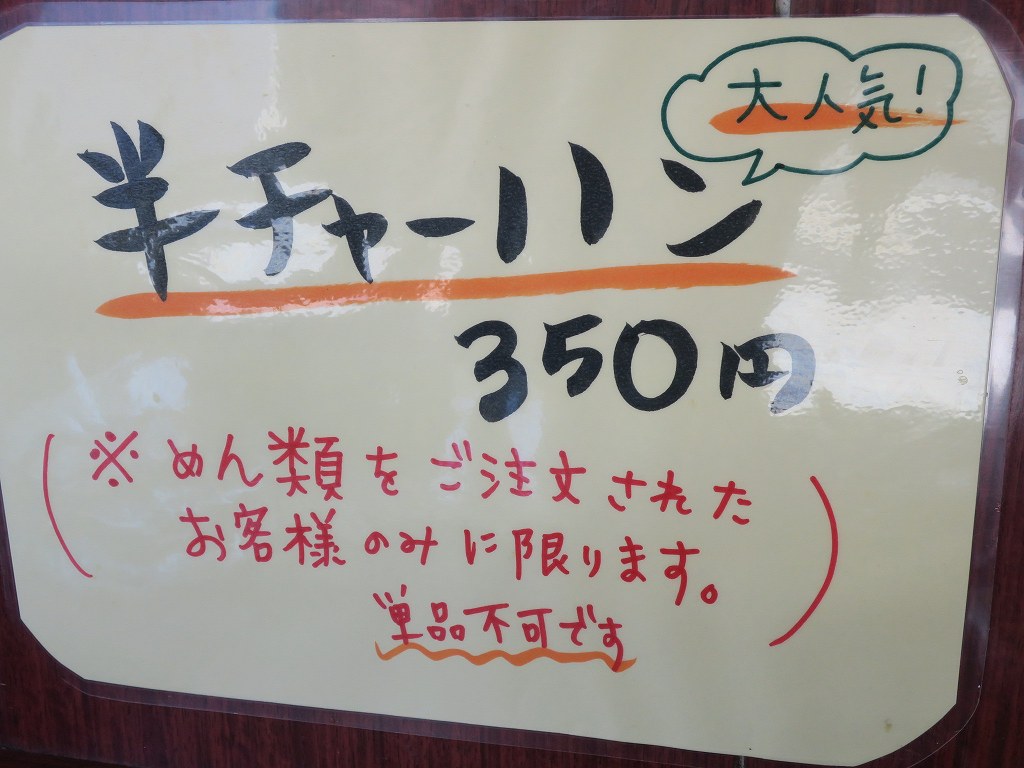 大人気!
半チャーハン
350円
(※めん類をご注文された
お客様のみに限ります。)
単品不可です